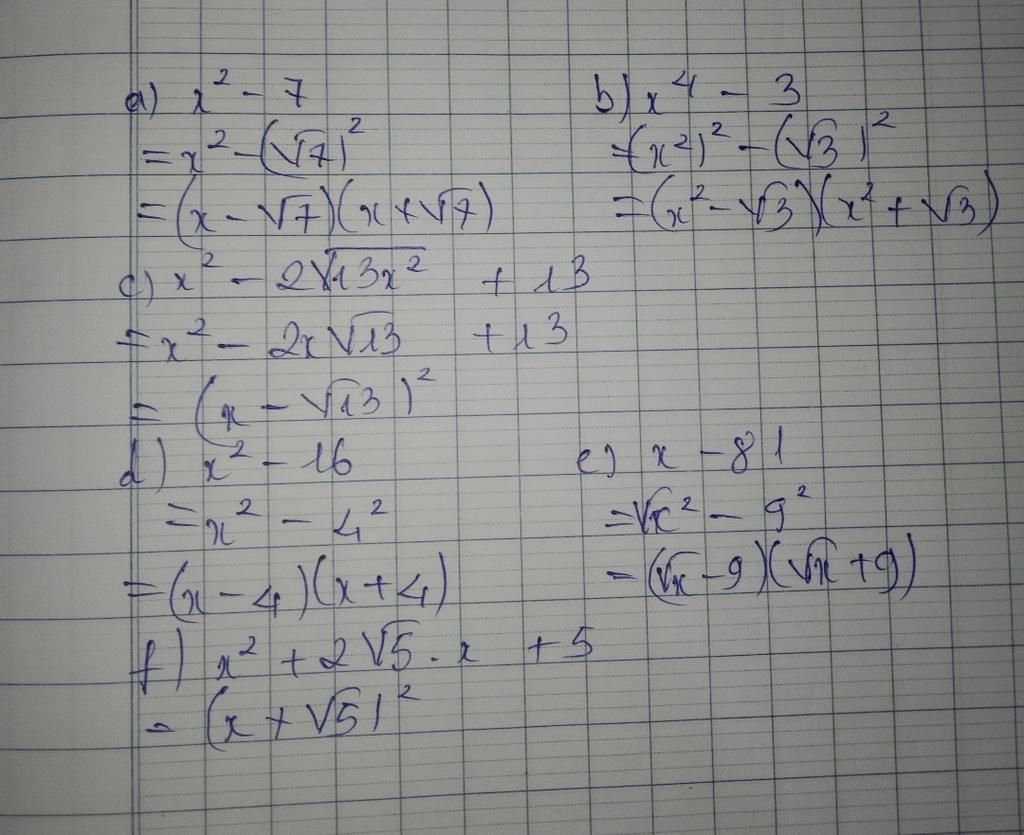 a) x² - 7
= x² - (√7)²
= (x - √7)(x + √7)
b) x⁴ - 3
= (x²)² - (√3)²
= (x² - √3)(x² + √3)
c) x² - 2√13x² + 13
= x² - 2x√13 + 13
= (x - √13)²
d) x² - 16
= x² - 4²
= (x - 4)(x + 4)
e) x - 81
= √x² - 9²
= (√x - 9)(√x + 9)
f) x² + 2√5 . x + 5
= (x + √5)²